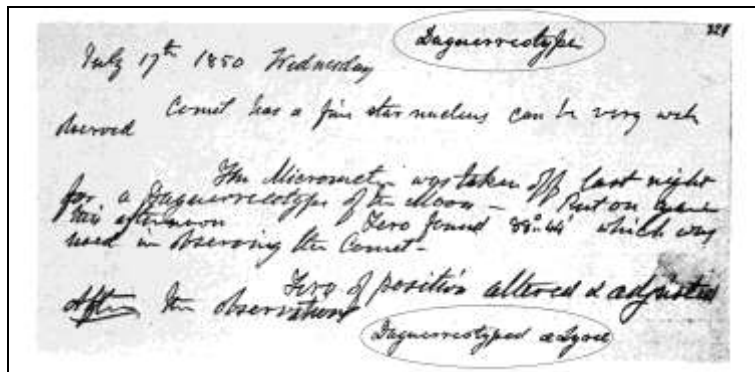 Daguerreotype
July 17th 1850 Wednesday
Comet has a fine star nucleus can be very well
observed
The Micrometer was taken off last night
for a Daguerreotype of the Moon — Put on again
this afternoon Zero found which was
used in observing the Comet -
Zero of position altered & adjusted
After the observations
Daguerreotyped α Lyrae